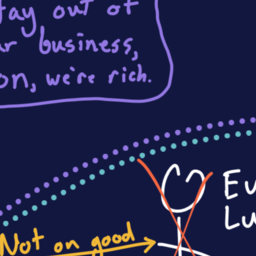 out of
business,
on, we're rich.
Not on good